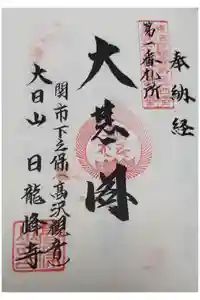 奉納経
第一番札所
大悲閣
関市下之保 髙沢観音
大日山 日龍峰寺